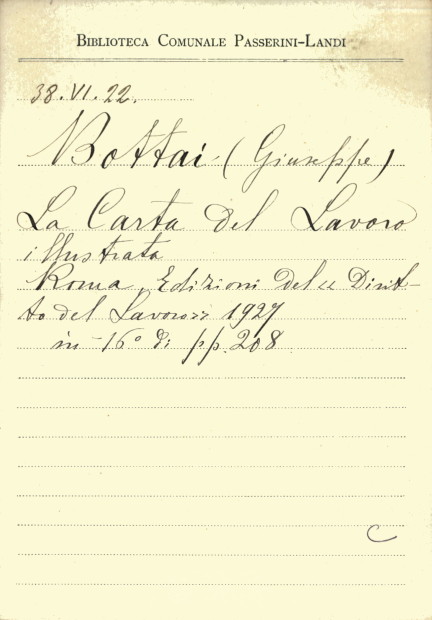 BIBLIOTECA COMUNALE PASSERINI-LANDI
38.VI.22.
Bottai (Giuseppe)
La Carta del Lavoro
illustrata
Roma, Edizioni del "Dirit-
to del Lavoro" 1927
in -16° di pp. 208
C